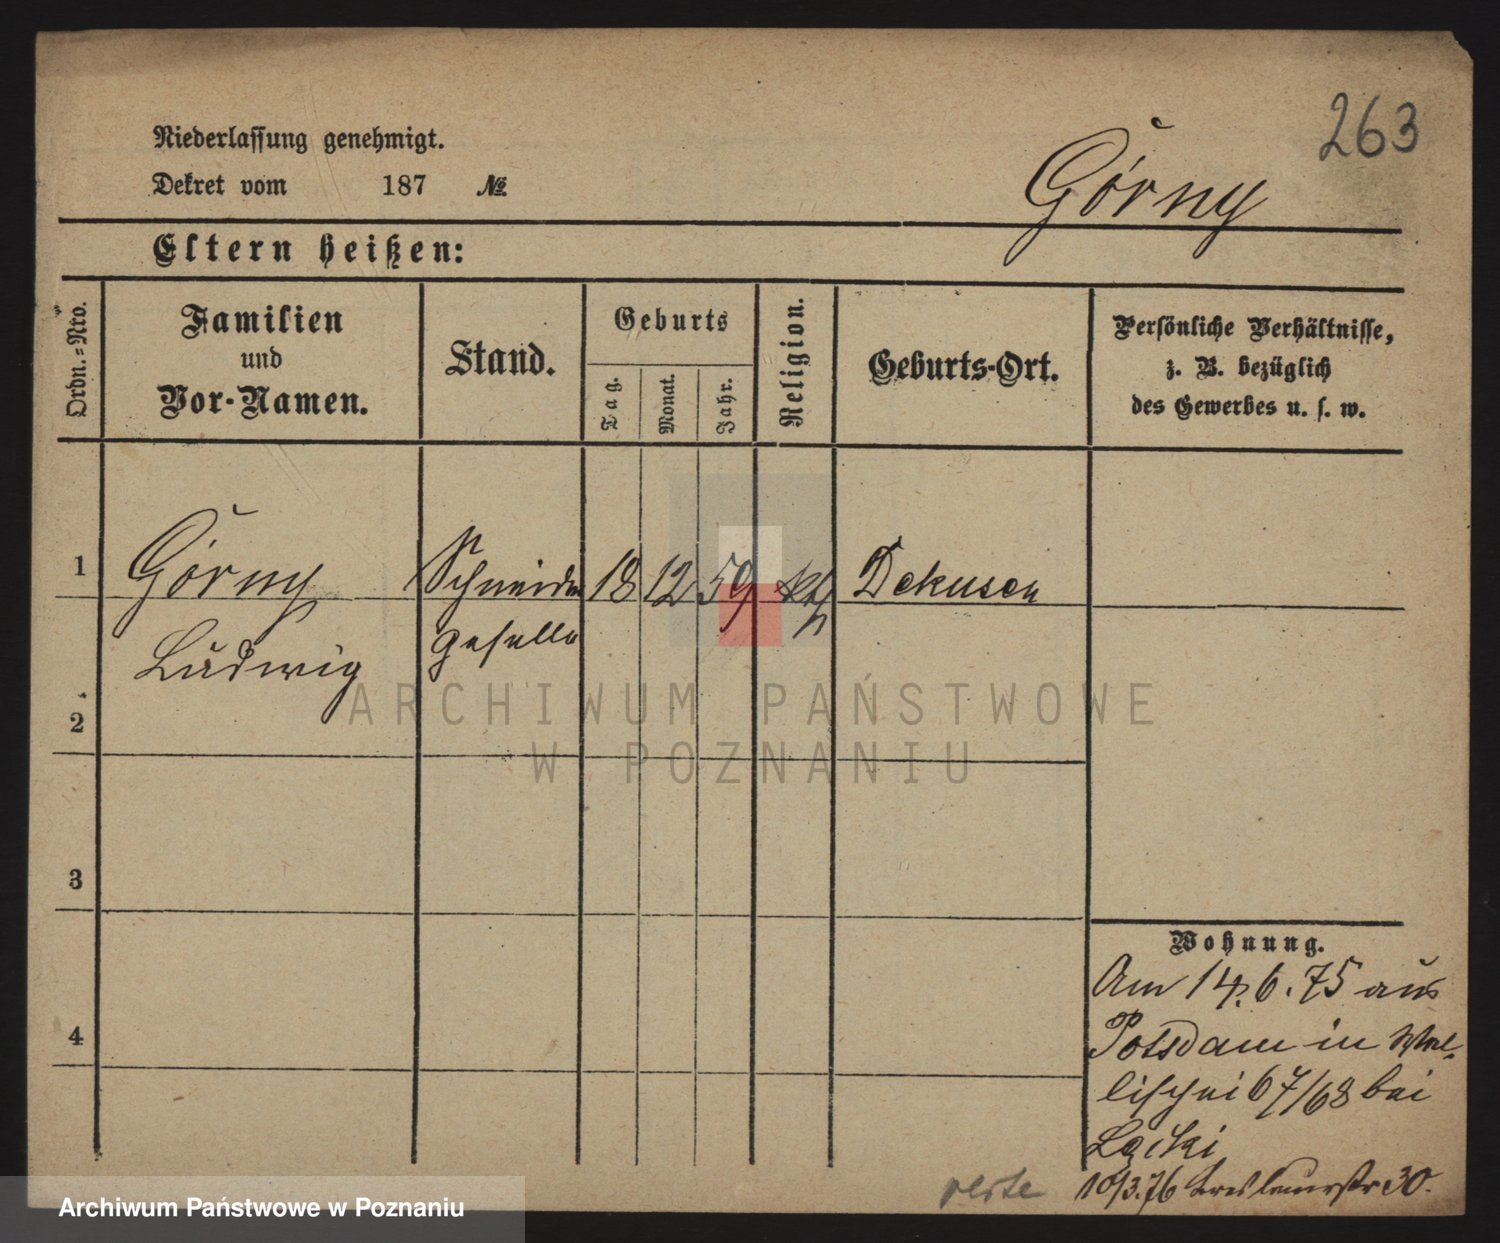 263
Niederlassung genehmigt.
Dekret vom 187 №
Górny
Eltern heißen:
Ordn.-Nro.
Familien
und
Vor-Namen.
Stand.
Geburts
Tag.
Monat.
Jahr.
Religion.
Geburts-Ort.
Persönliche Verhältnisse,
z. B. bezüglich
des Gewerbes u. s. w.
1 Górny Schneider 18 12 59 kth Dekusen
Ludwig geselle
2
3
4
Wohnung.
Am 14.6.75 aus
Potsdam in Wal-
lischei 67/68 bei
Łącki
10/3.76 Breslauerstr 30.
verte
ARCHIWUM PAŃSTWOWE
W POZNANIU
Archiwum Państwowe w Poznaniu